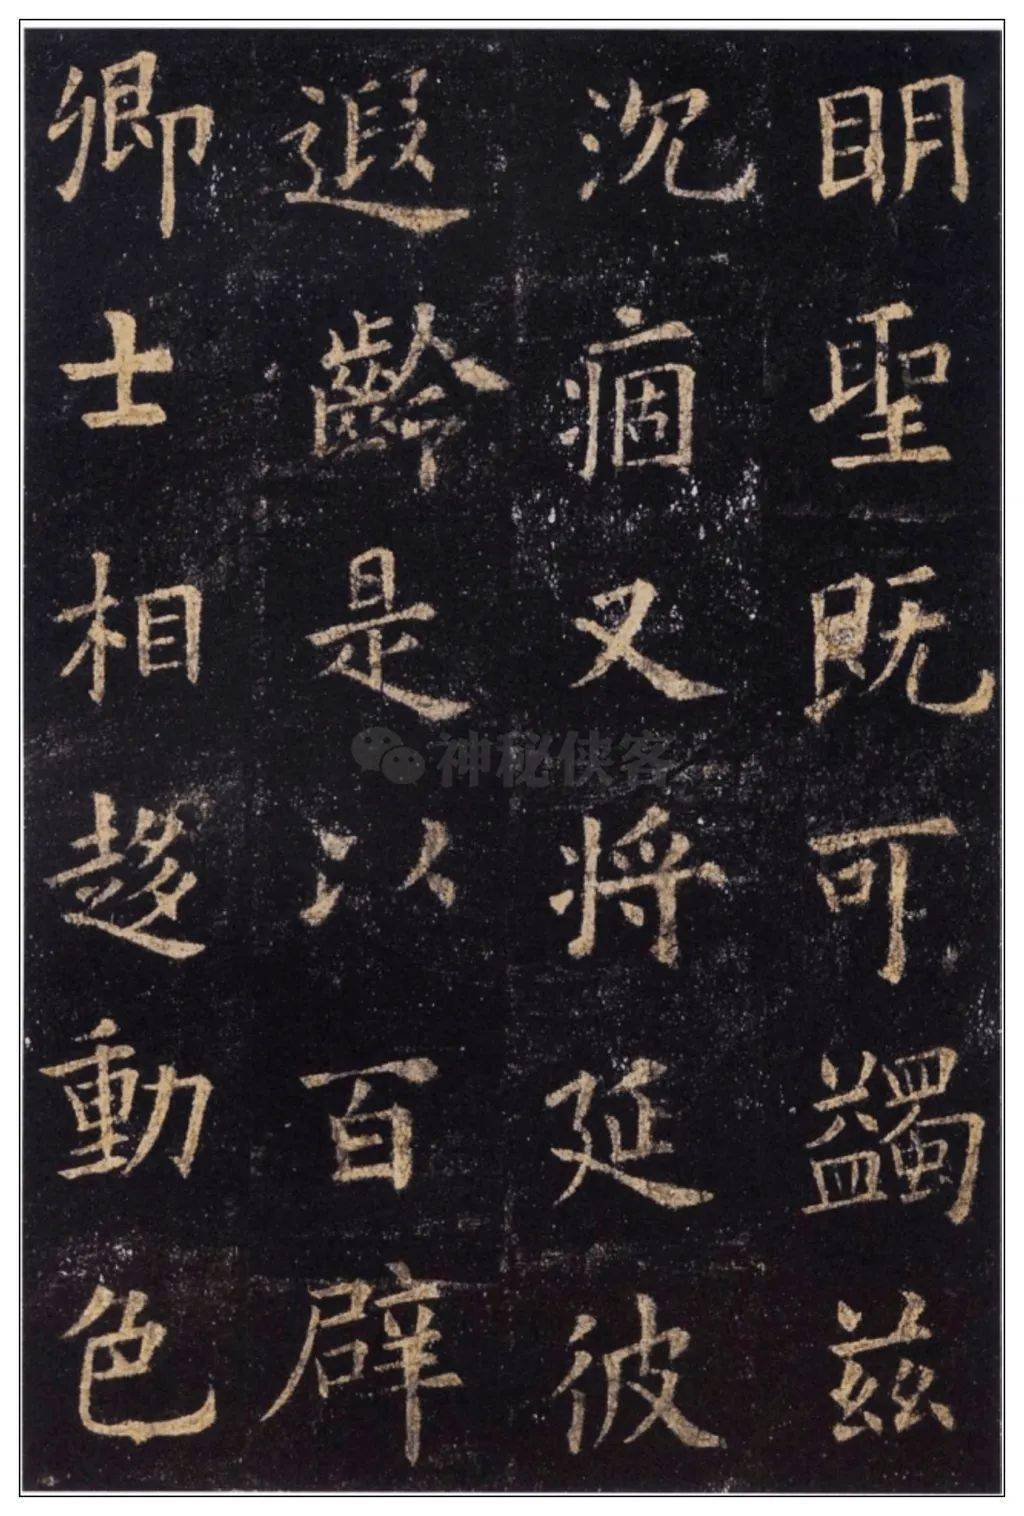 明聖既可蠲茲
沉痼又將延彼
遐齡是以百辟
卿士相趍動色
神秘侠客